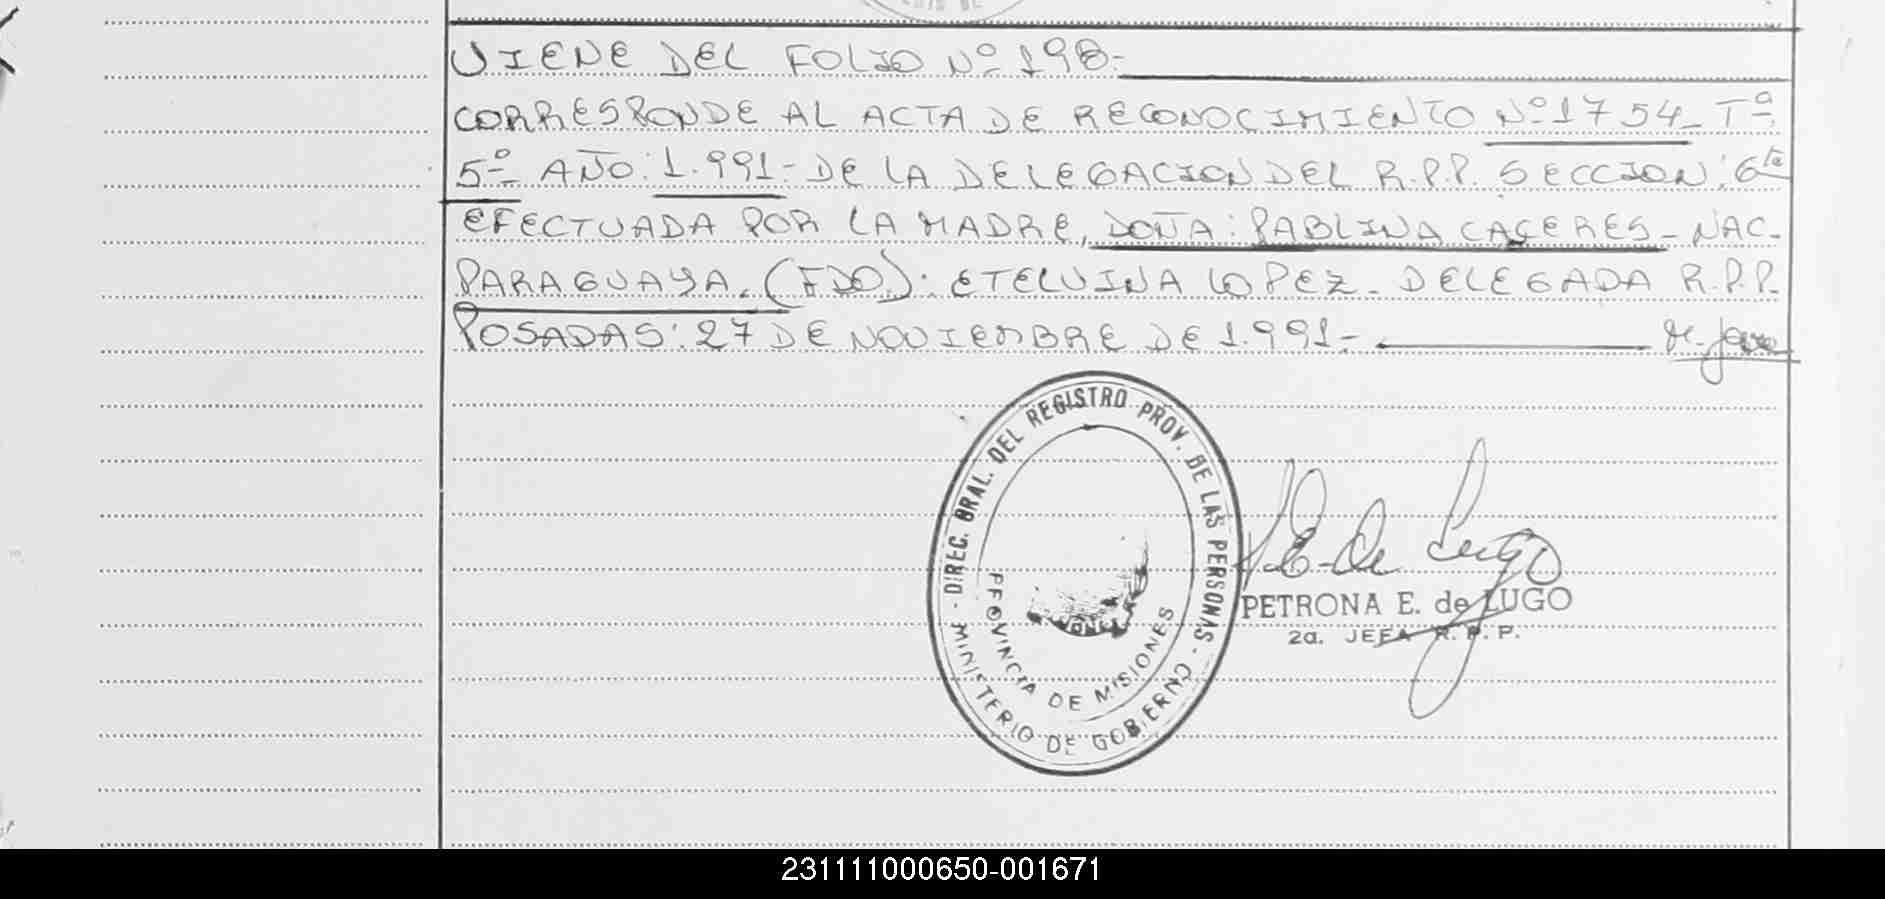 VIENE DEL FOLIO Nº 198-
CORRESPONDE AL ACTA DE RECONOCIMIENTO Nº 1754- Tº
5º AÑO: 1.991- DE LA DELEGACION DEL R.P.P. SECCION: 6ta
EFECTUADA POR LA MADRE, DOÑA: PABLINA CACERES- NAC-
PARAGUAYA. (FDO): ETELVINA LOPEZ- DELEGADA R.P.P.
POSADAS: 27 DE NOVIEMBRE DE 1.991-
- DIREC. GRAL. DEL REGISTRO PROV. DE LAS PERSONAS -
MINISTERIO DE GOBIERNO
PROVINCIA DE MISIONES
P.E. de Lugo
PETRONA E. de LUGO
2a. JEFA R. P. P.
231111000650-001671